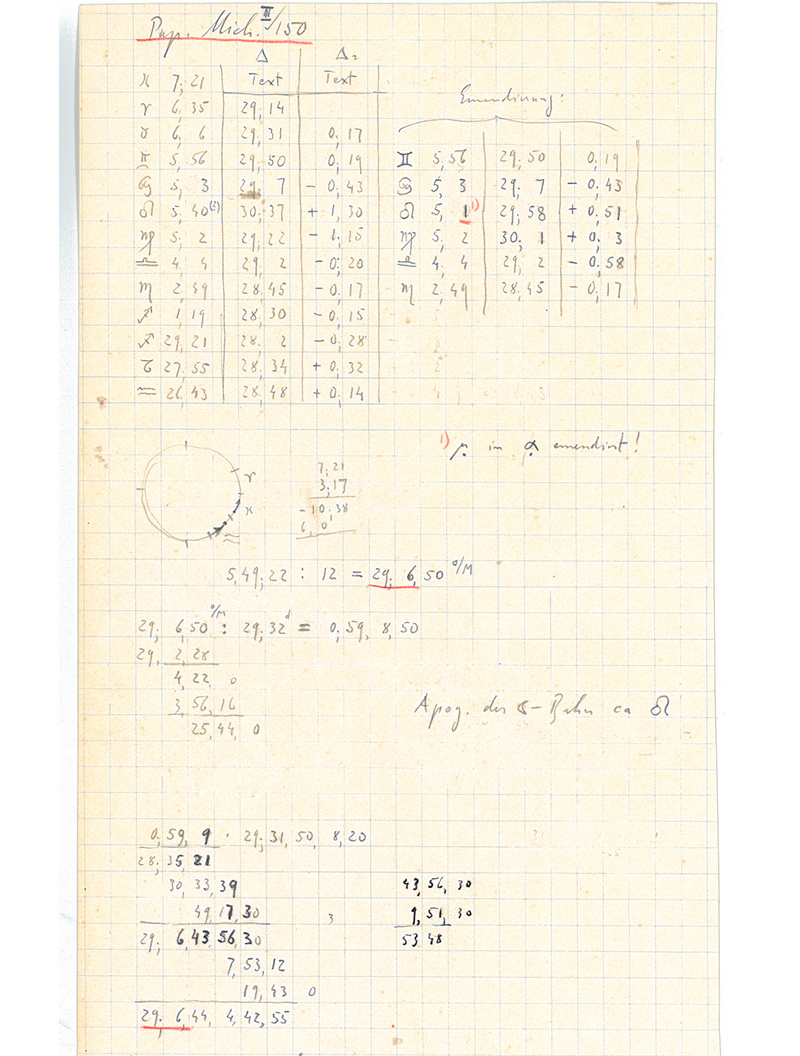 Pap. Mich. III/150
Δ Δ₂
♓ 7; 21 Text Text
♈ 6, 35 29; 14
♉ 6, 6 29; 31 0; 17
♊ 5, 56 29; 50 0; 19
♋ 5, 3 29; 7 - 0; 43
♌ 5, 40 30; 37 + 1; 30
♍ 5, 2 29; 22 - 1; 15
♎ 4, 4 29; 2 - 0; 20
♏ 2, 49 28; 45 - 0; 17
♐ 1, 19 28; 30 - 0; 15
♐ 29, 21 28; 2 - 0; 28
♑ 27, 55 28; 34 + 0; 32
♒ 26, 43 28; 48 + 0; 14
Emendierung:
♊ 5, 56 29; 50 0; 19
♋ 5, 3 29; 7 - 0; 43
♌ 5, 1 ¹⁾ 29; 58 + 0; 51
♍ 5, 2 30; 1 + 0; 3
♎ 4, 4 29; 2 - 0; 58
♏ 2, 49 28; 45 - 0; 17
¹⁾ μ in α emendiert!
♈
♓
♒
7; 21
3; 17
- 10; 38
6, 0
5,49; 22 : 12 = 29; 6, 50 °/M
29; 6, 50 °/M : 29; 32 d = 0; 59, 8, 50
29, 2, 28
4, 22 0
3, 56, 16
25, 44, 0
Apog. der ☾-Bahn ca ♌
0; 59, 9 · 29; 31, 50, 8, 20
28; 35 21
30, 33, 39
49, 17, 30 3
29; 6, 43, 56, 30
7, 53, 12
19, 43 0
29; 6, 44, 4, 42, 55
43, 56, 30
9, 51, 30
53 48